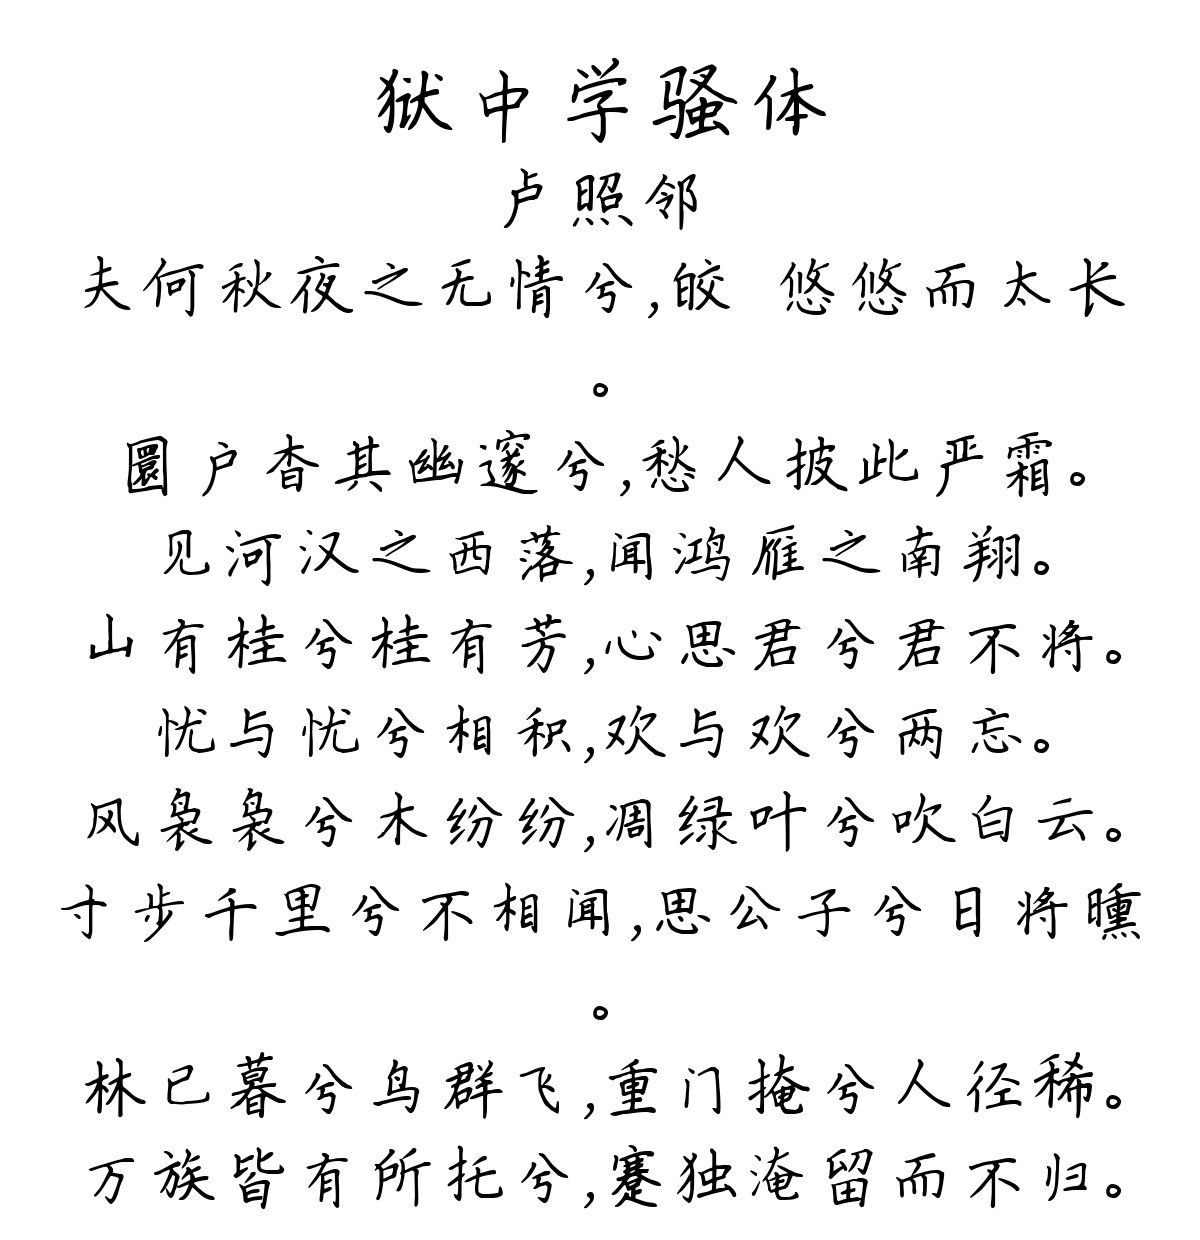 狱中学骚体
卢照邻
夫何秋夜之无情兮,皎 悠悠而太长
。
圜户杳其幽邃兮,愁人披此严霜。
见河汉之西落,闻鸿雁之南翔。
山有桂兮桂有芳,心思君兮君不将。
忧与忧兮相积,欢与欢兮两忘。
风袅袅兮木纷纷,凋绿叶兮吹白云。
寸步千里兮不相闻,思公子兮日将曛
。
林已暮兮鸟群飞,重门掩兮人径稀。
万族皆有所托兮,蹇独淹留而不归。